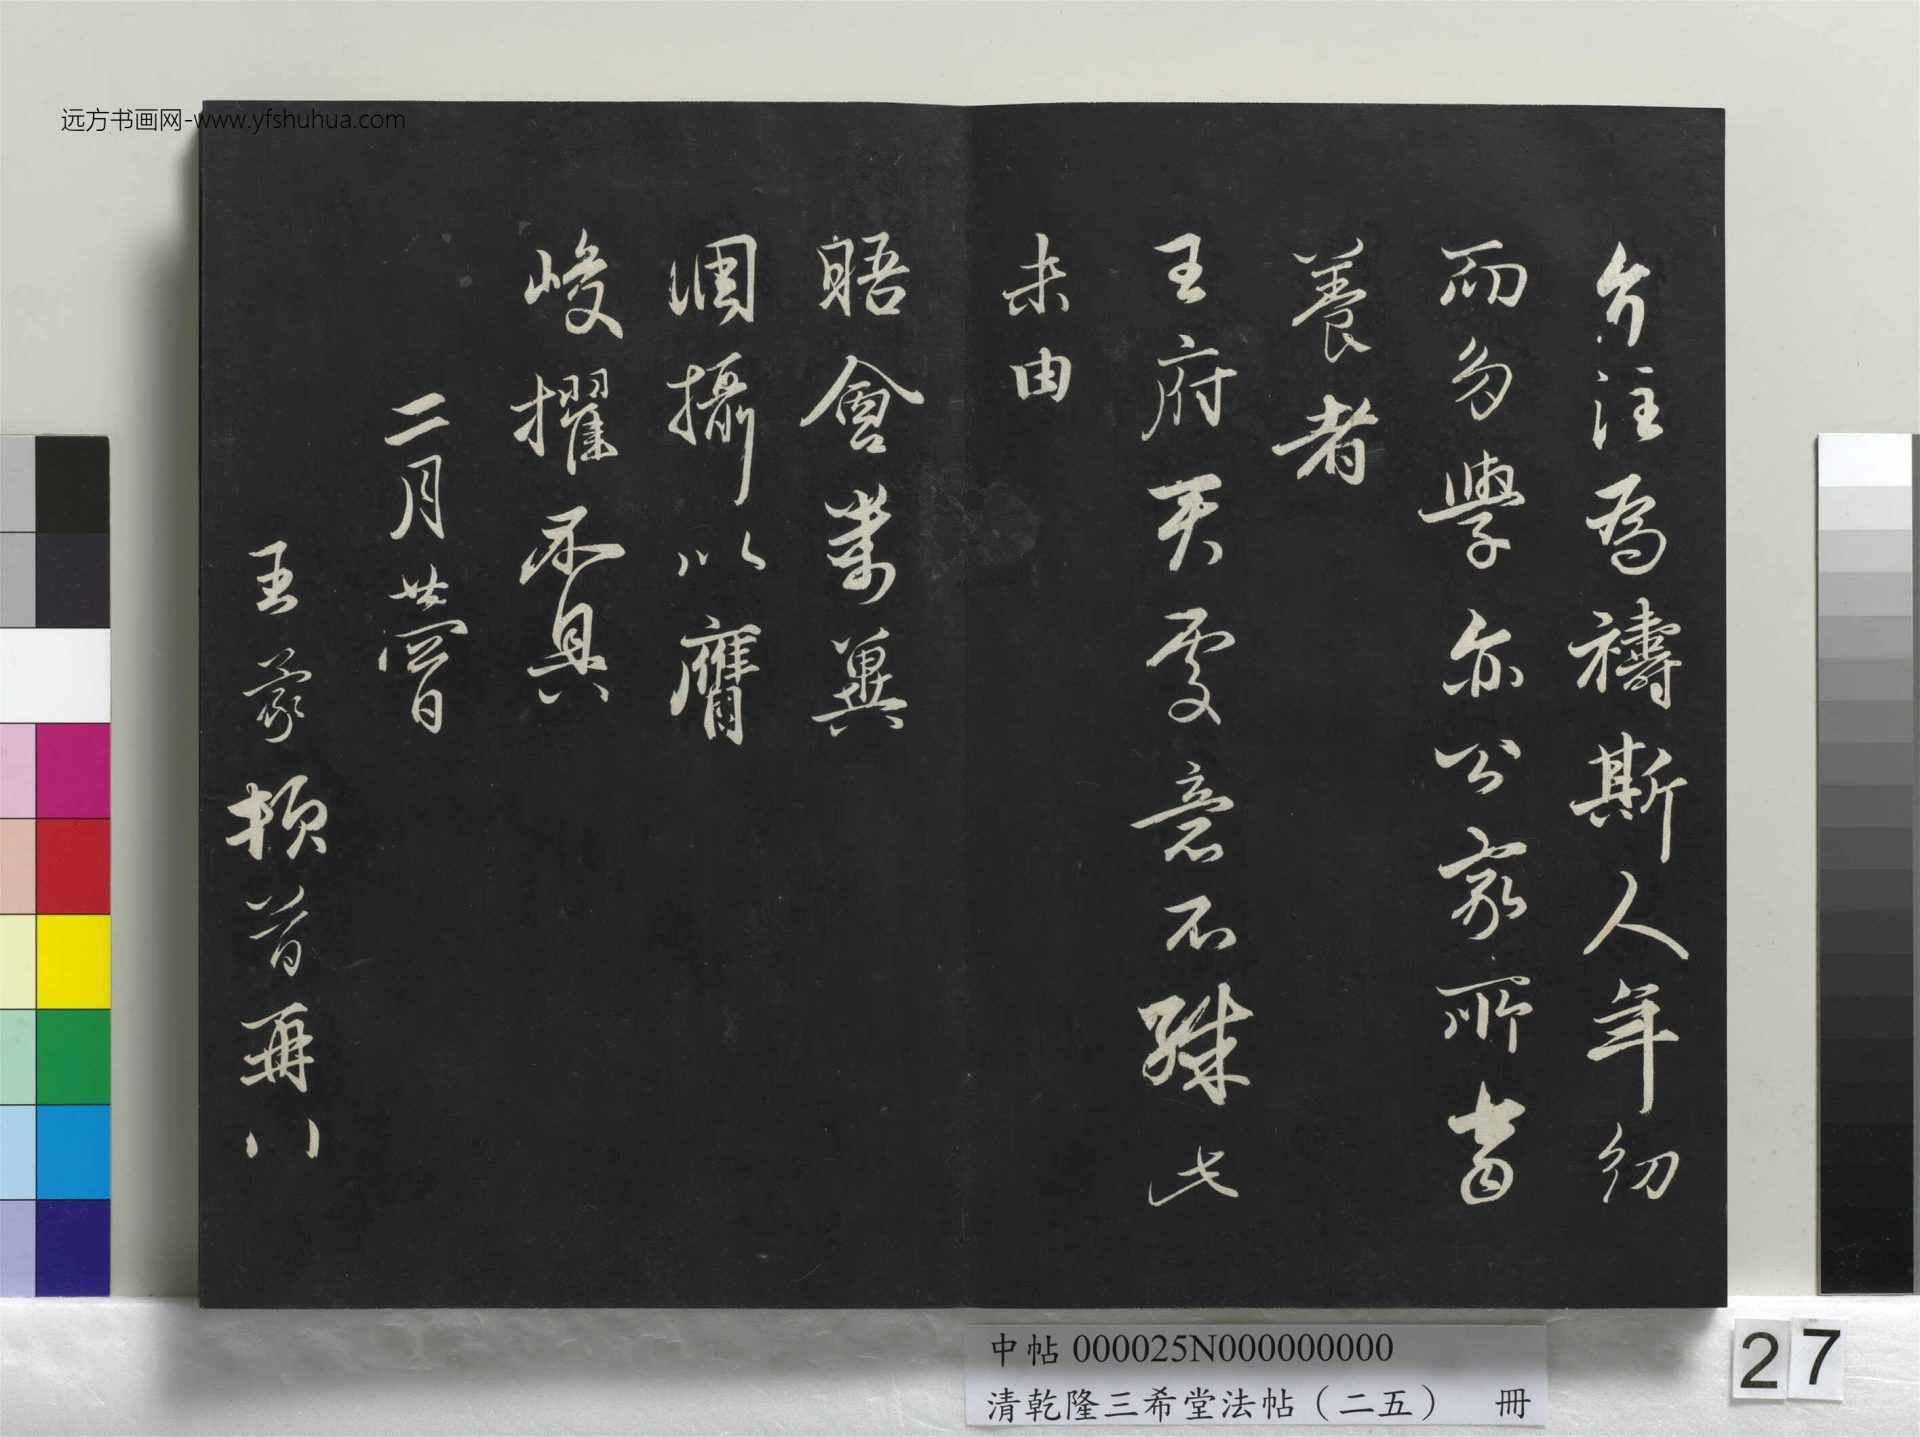 远方书画网-www.yfshuhua.com
介注為禱斯人年幼
而勿學亦公家所當
養者
王府天處意不殊此
未由
晤會萬冀
調攝以膺
峻擢不具
二月廿
王蒙頓首再
中帖 000025N000000000
清乾隆三希堂法帖（二五） 冊
27